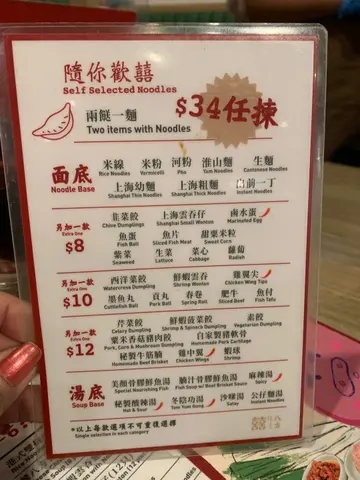 隨你歡喜
Self Selected Noodles
兩餸一麵
Two items with Noodles
$34任揀
面底
Noodle Base
米線 米粉 河粉 淮山麵 生麵
Rice Noodles Vermicelli Pho Yam Noodles Cantonese Noodles
上海幼麵 上海粗麵 出前一丁
Shanghai Thin Noodles Shanghai Thick Noodles Instant Noodles
另加一款
Extra One
$8
韭菜餃 上海雲吞仔 鹵水蛋
Chive Dumplings Shanghai Small Wonton Marinated Egg
魚蛋 魚片 甜粟米粒
Fish Ball Sliced Fish Meat Sweet Corn
紫菜 生菜 菜心 蘿蔔
Seaweed Lettuce Cabbage Radish
另加一款
Extra One
$10
西洋菜餃 鮮蝦雲吞 雞翼尖
Watercress Dumpling Shrimp Wonton Chicken Wing Tips
墨魚丸 貢丸 春卷 肥牛 魚付
Cuttlefish Ball Pork Ball Spring Ball Sliced Beef Fish Tofu
另加一款
Extra One
$12
芹菜餃 鮮蝦菠菜餃 素餃
Celery Dumpling Shrimp & Spinach Dumpling Vegetarian Dumpling
粟米香菇豬肉餃 自家製豬軟骨
Pork, Corn & Mushroom Dumpling Homemade Pork Cartilage
秘製牛筋腩 雞中翼 蝦球
Homemade Beef Brisket Chicken Wings Shrimp
湯底
Soup Base
美顏骨膠鮮魚湯 腩汁骨膠鮮魚湯 麻辣湯
Special Nourishing Fish Fish Soup w/ Beef Brisket Sauce Spicy
秘製酸辣湯 冬陰功湯 沙嗲湯 公仔麵湯
Hot & Sour Tom Yum Gung Satay Instant Noodle
*以上每款選項不可重復選擇
Single selection in each category